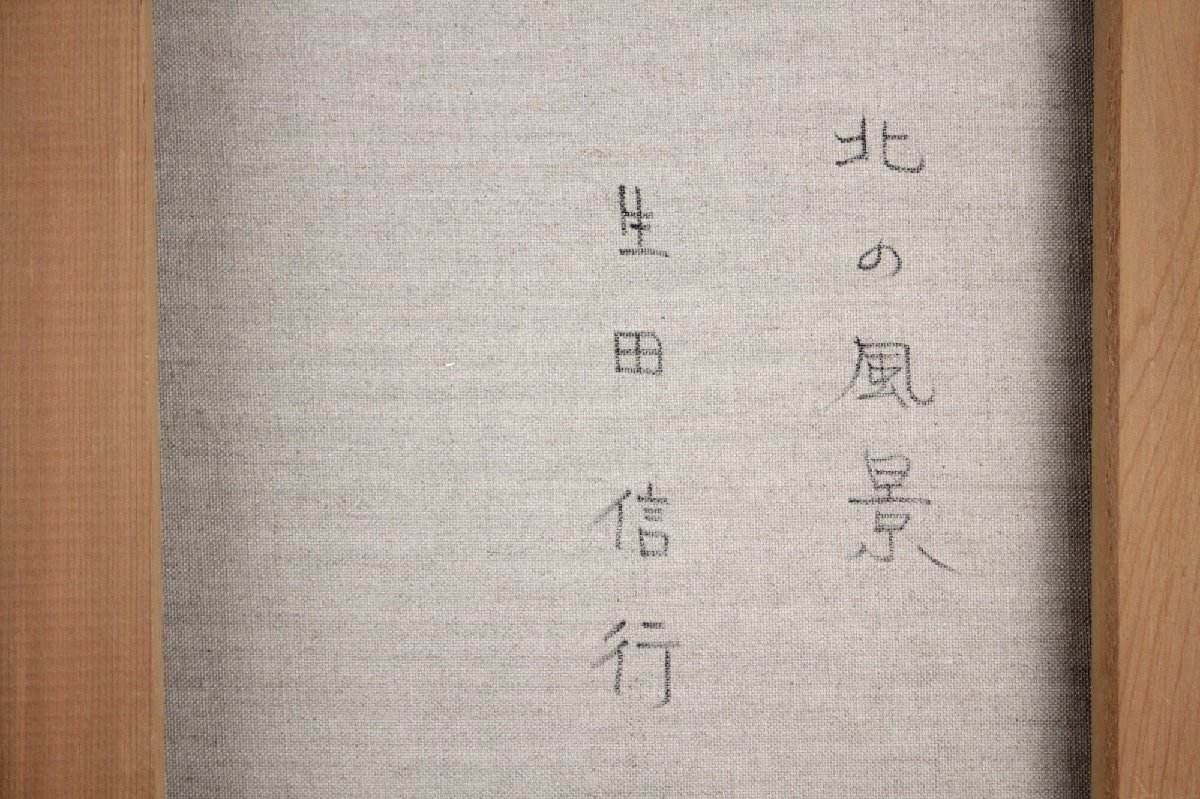 北の風景
生田信行